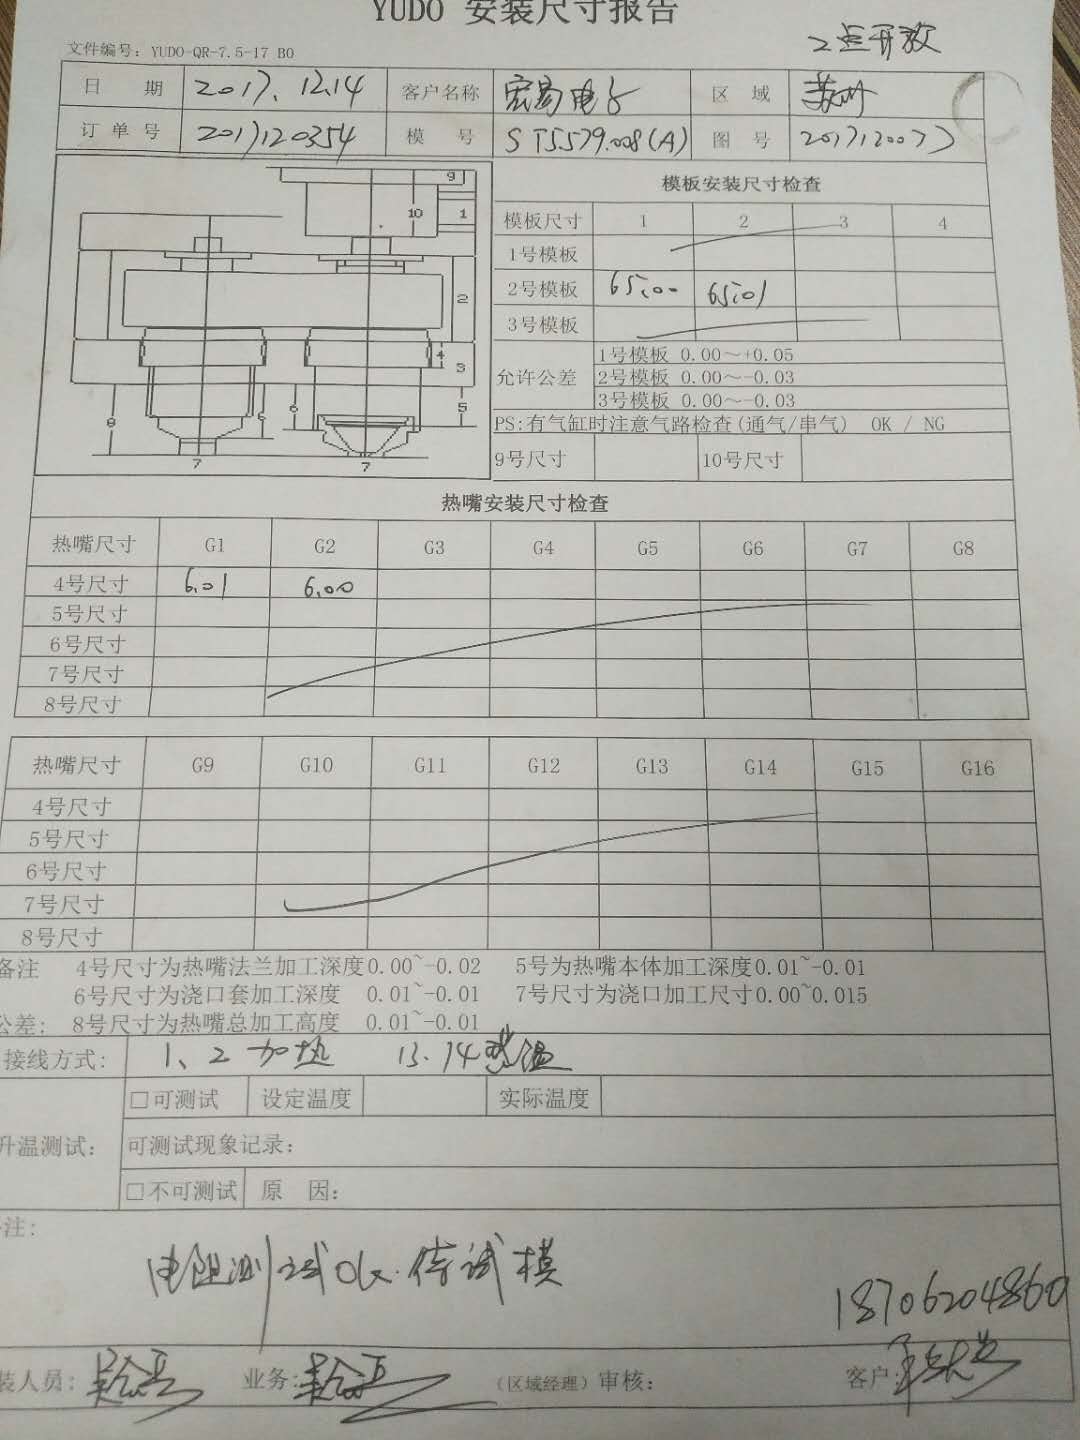 YUDO 安装尺寸报告
2点开放
文件编号: YUDO-QR-7.5-17 B0
日 期 2017.12.14 客户名称 宏易电子 区 域 苏州
订 单 号 20171120354 模 号 ST5.579.008(A) 图 号 2017120077
9
10 1
2
4
3
5
8 6 6
7 7
模板安装尺寸检查
模板尺寸 1 2 3 4
1号模板
2号模板 65.00 65.01
3号模板
允许公差 1号模板 0.00~+0.05
2号模板 0.00~-0.03
3号模板 0.00~-0.03
PS:有气缸时注意气路检查(通气/串气) OK / NG
9号尺寸 10号尺寸
热嘴安装尺寸检查
热嘴尺寸 G1 G2 G3 G4 G5 G6 G7 G8
4号尺寸 6.01 6.00
5号尺寸
6号尺寸
7号尺寸
8号尺寸
热嘴尺寸 G9 G10 G11 G12 G13 G14 G15 G16
4号尺寸
5号尺寸
6号尺寸
7号尺寸
8号尺寸
备注 4号尺寸为热嘴法兰加工深度0.00~-0.02 5号为热嘴本体加工深度0.01~-0.01
6号尺寸为浇口套加工深度 0.01~-0.01 7号尺寸为浇口加工尺寸0.00~0.015
公差: 8号尺寸为热嘴总加工高度 0.01~-0.01
接线方式: 1、2加热 13.14感温
□可测试 设定温度 实际温度
升温测试: 可测试现象记录:
□不可测试 原 因:
注:
电阻测试ok.待试模
18706204860
装人员: 业务: (区域经理)审核: 客户: